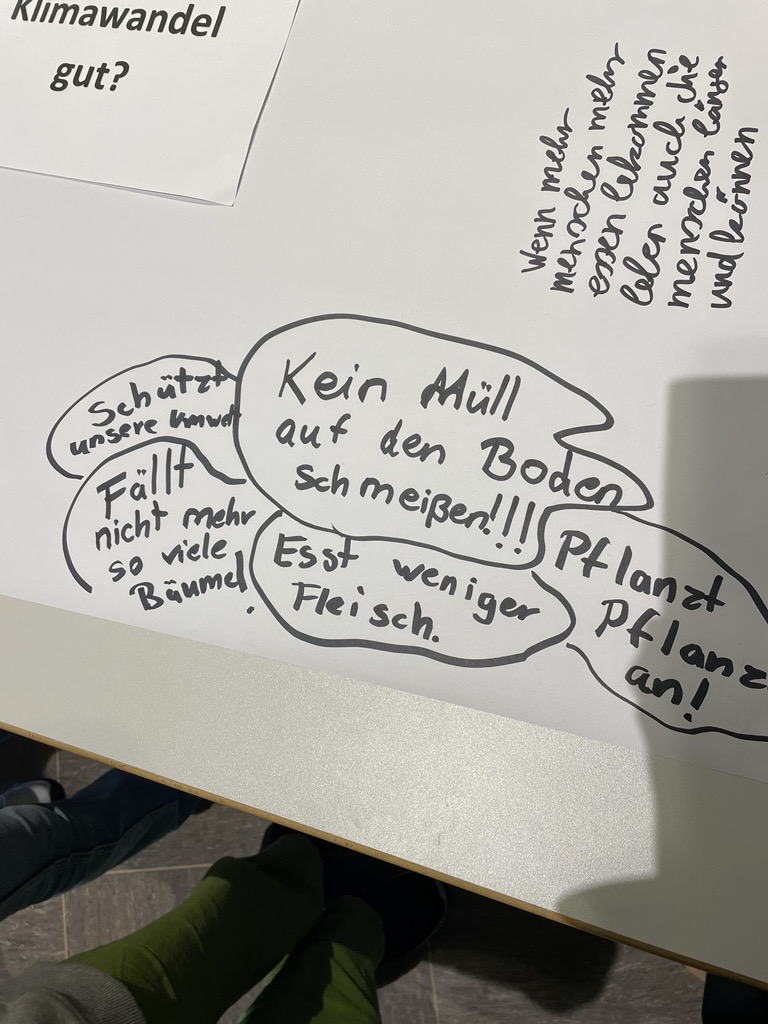 Klimawandel
gut?
Wenn mehr
menschen mehr
essen bekommen
leben auch die
menschen länger
und können
Schützt
unsere Umwelt
Kein Müll
auf den Boden
schmeißen!!!
Fällt
nicht mehr
so viele
Bäume!
Esst weniger
Fleisch.
Pflanzt
Pflanz
an!